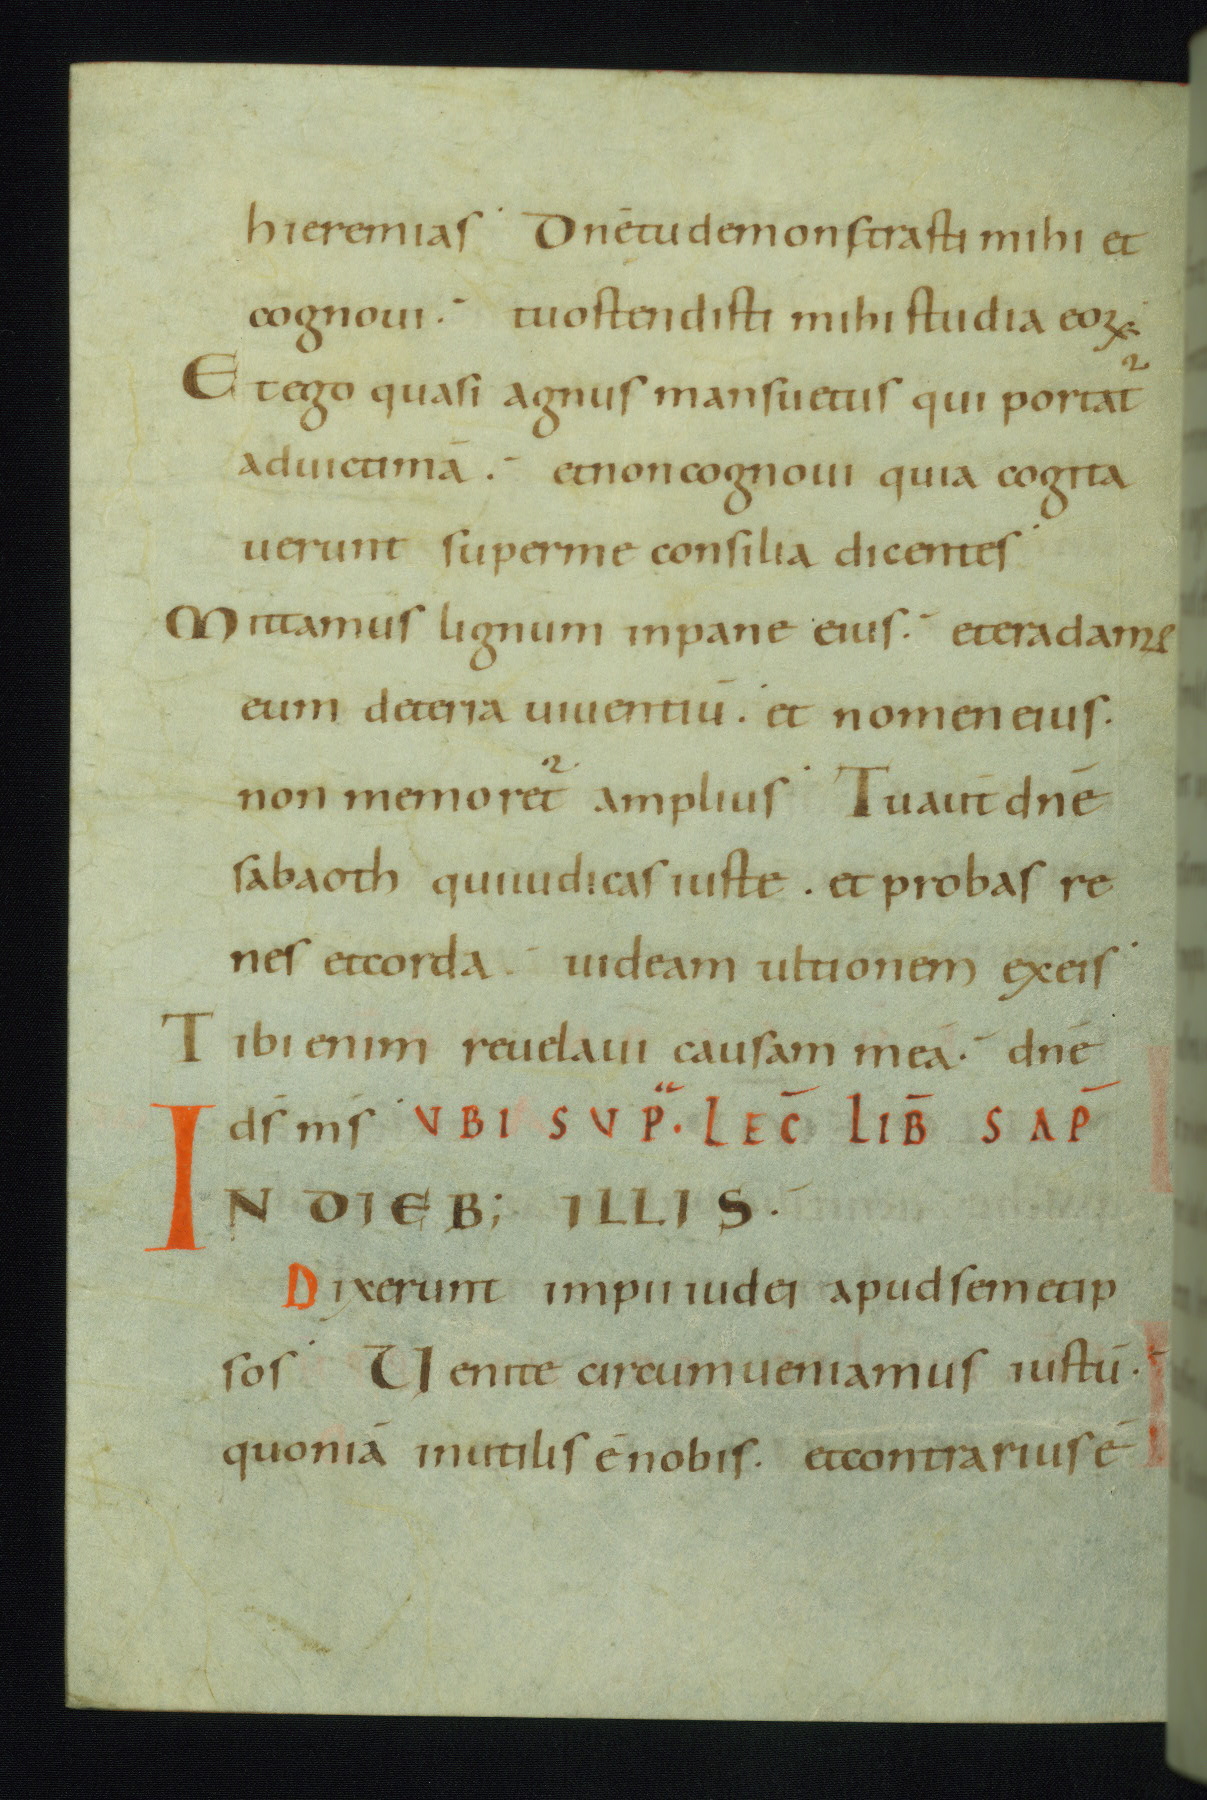 hieremias· Dnētudemonstrasti mihi et
cognoui·- tuostendisti mihi studia eoꝝ·
Etego quasi agnus mansuetus qui portat᷑
aduictimā·- etnoncognoui quia cogita
uerunt superme consilia dicentes·
Mittamus lignum inpane eius·- eteradamꝰ
eum deterra uiuentiū· et nomen eius·
non memoret᷑ amplius· Tuaut̄ dnē
sabaoth quiiudicas iuste · et probas re
nes etcorda·- uideam ultionem exeis·
Tibi enim reuelaui causam meā·- dnē
ds̄ ms̄· VBI SVP̄· LEC̄ LIB̄ SAP̄
IN DIEB; ILLIS·
Dixerunt impii iudei apudsemetip
sos· Uenite circumueniamus iustū·-
quoniā inutilis ē nobis· etcontrarius ē